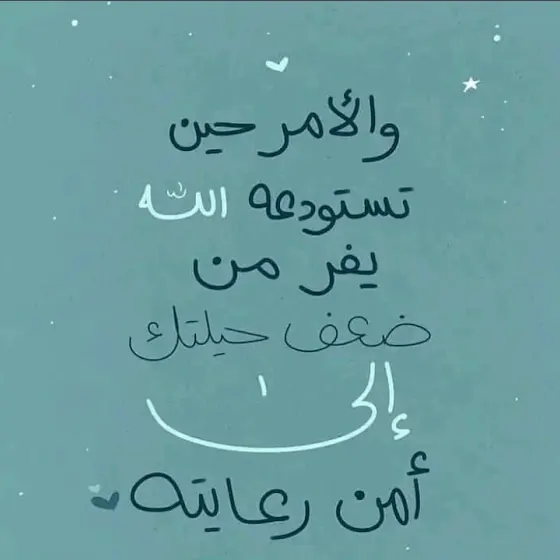 والأمر حين
تستودعه الله
يفر من
ضعف حيلتك
إلى
أمن رعايته